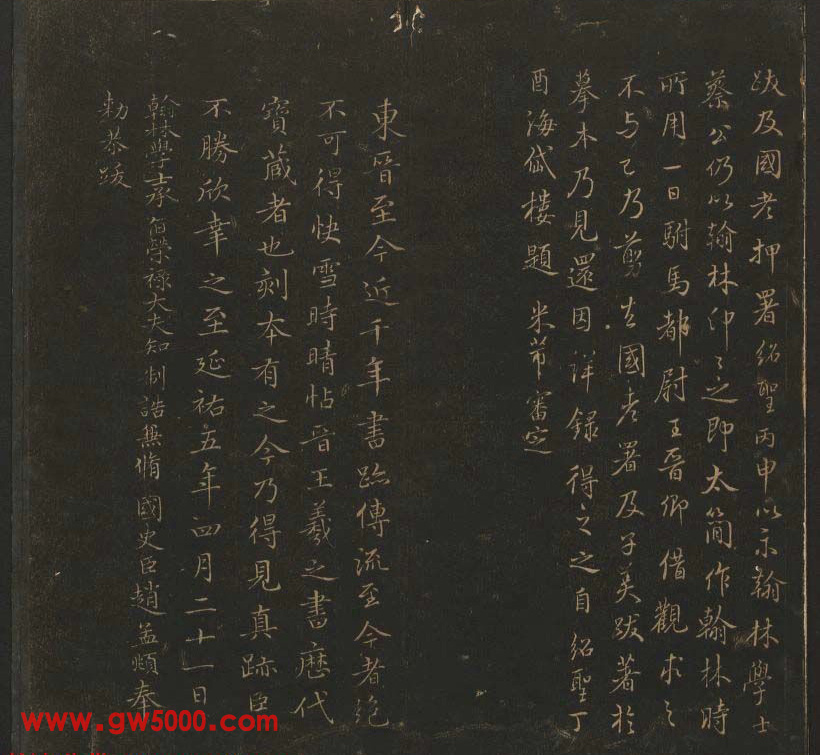 跋及國老押署紹聖丙申以示翰林學士
蔡公仍以翰林印之即太簡作翰林時
所用一日駙馬都尉王晉卿借觀求之
不与已乃剪去國老署及子美跋著於
摹本乃見還因詳錄得之之自紹聖丁
酉海岱樓題 米芾審定
東晉至今近千年書跡傳流至今者絕
不可得快雪時晴帖晉王羲之書歷代
寶藏者也刻本有之今乃得見真跡臣
不勝欣幸之至延祐五年四月二十一日
翰林學士承旨榮祿大夫知制誥兼脩國史臣趙孟頫奉
勑恭跋
www.gw5000.com